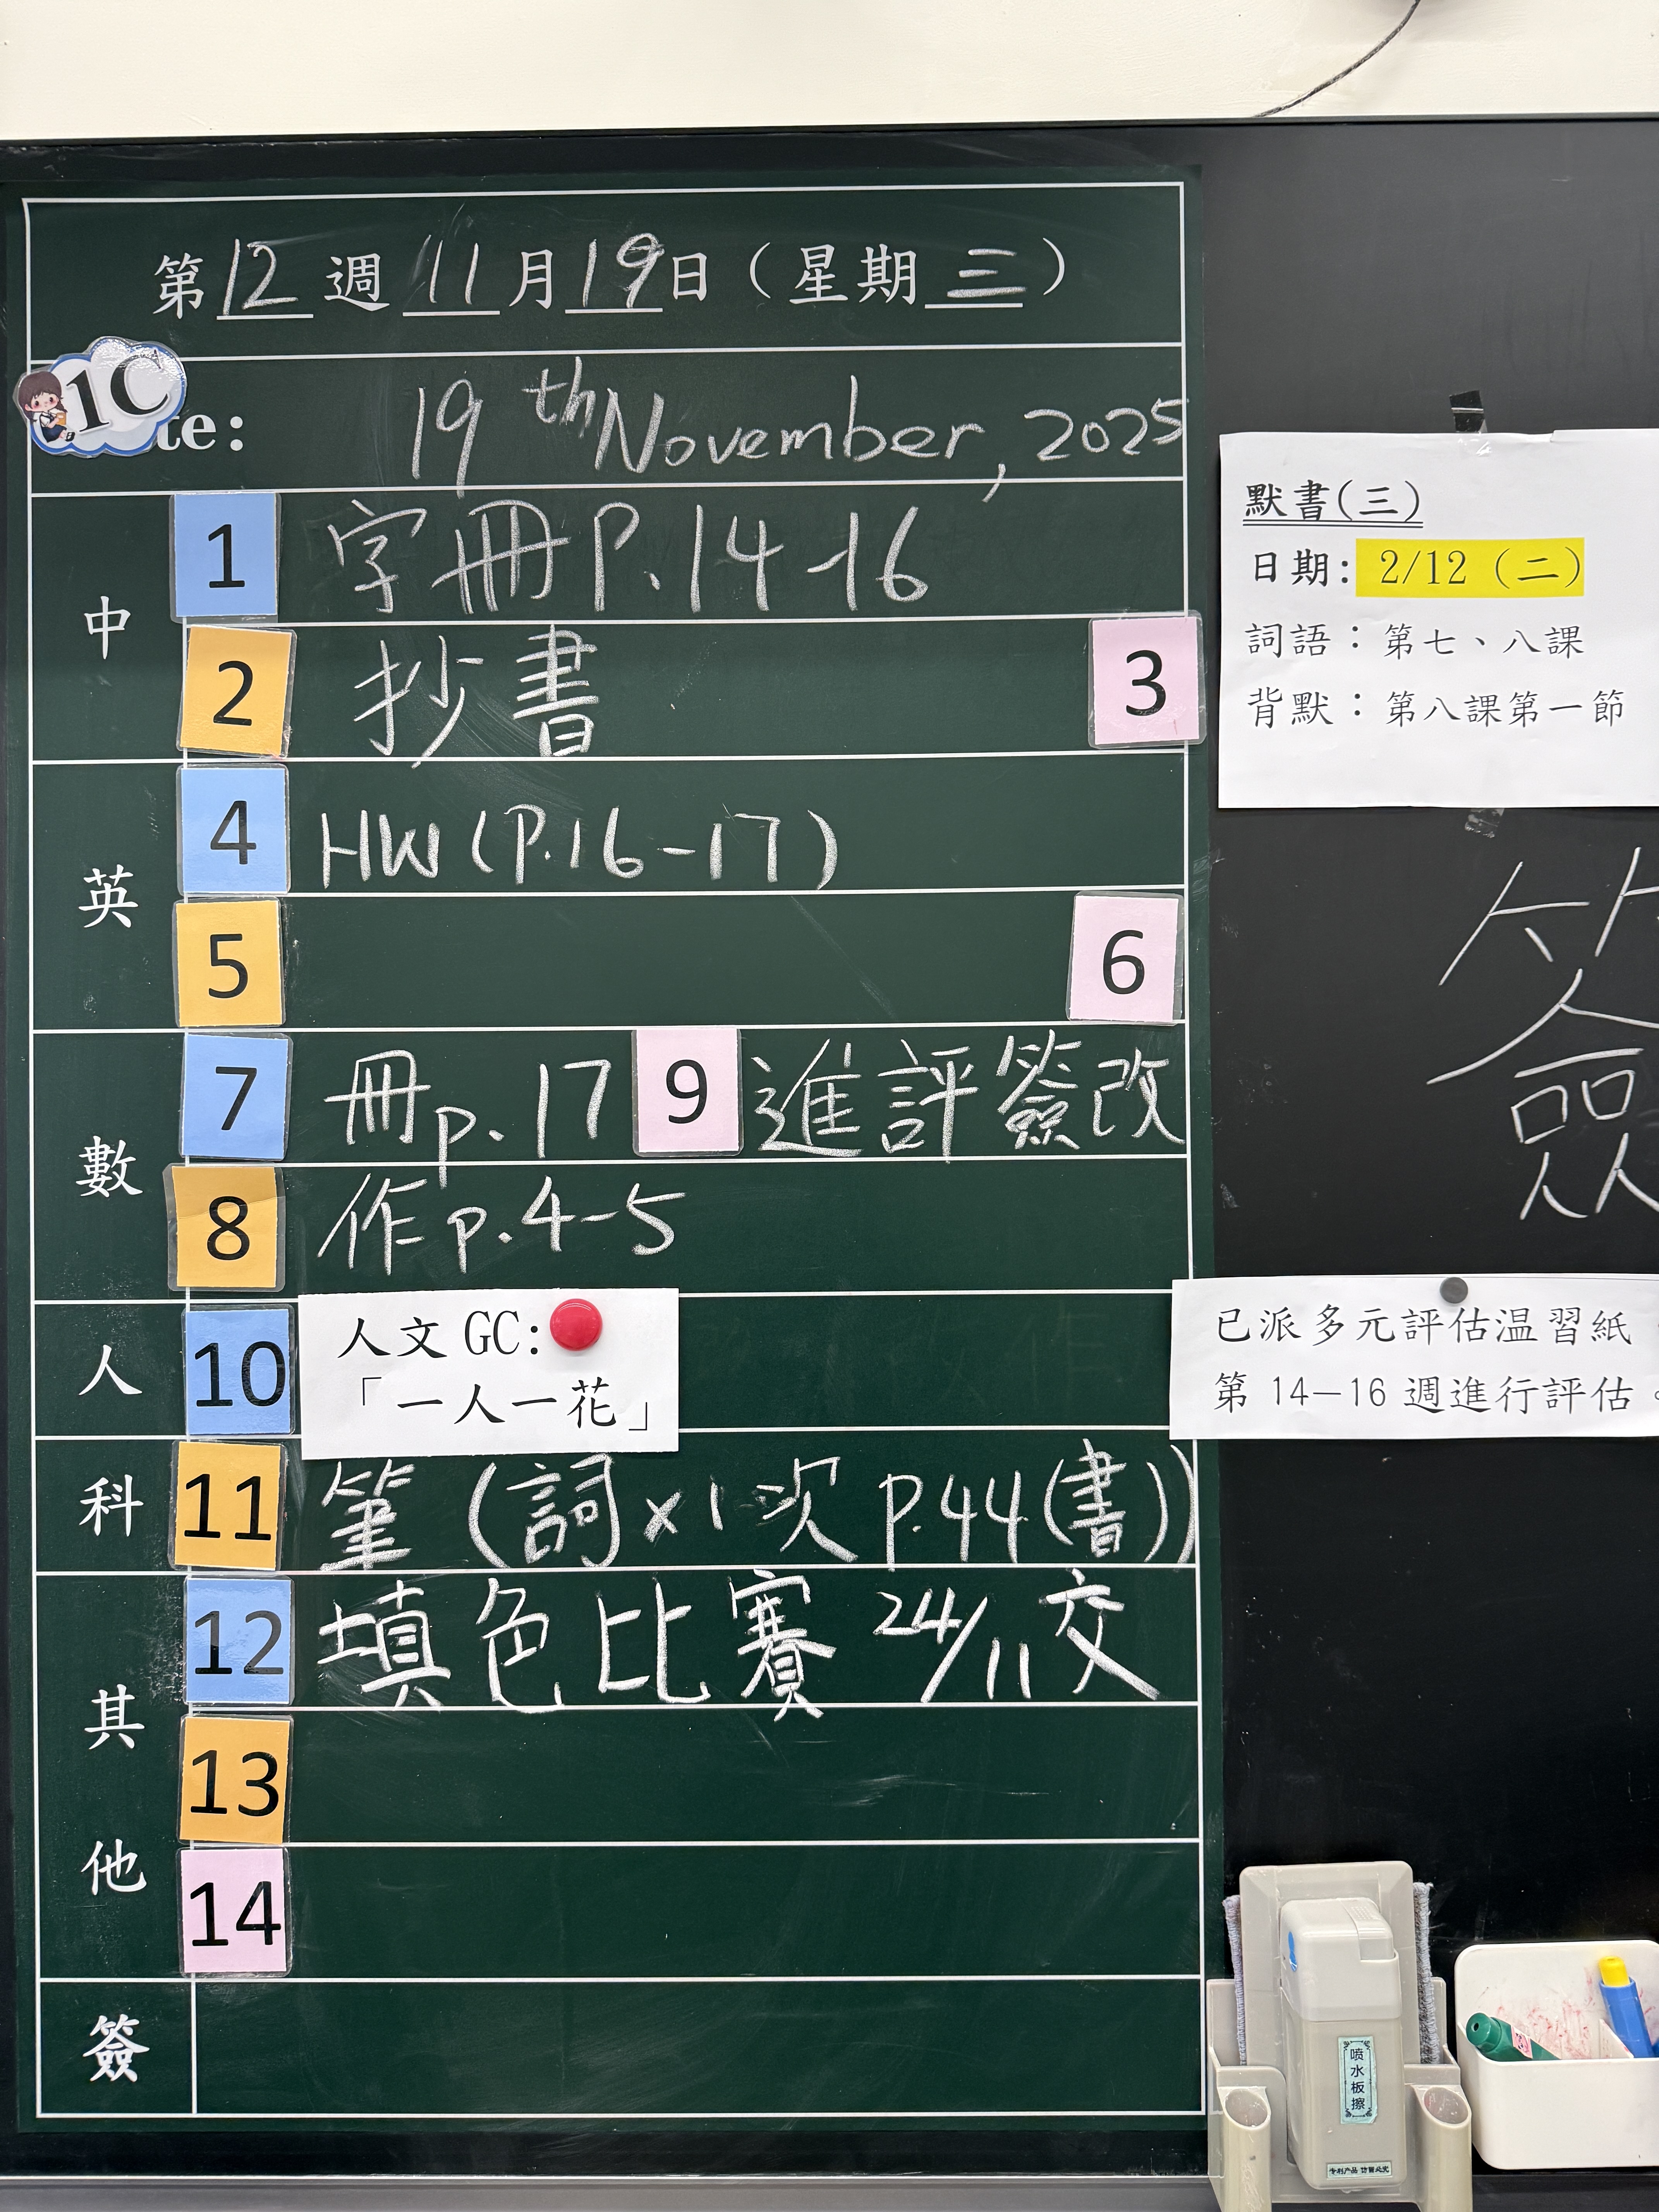 第12週11月19日（星期三）
1C
te: 19th November, 2025
中
1 字冊P.14-16
2 抄書 3
英
4 HW(P.16-17)
5 6
數
7 冊p.17 9 進評簽改
8 作p.4-5
人
10 人文 GC:
「一人一花」
科
11 筆(詞x1次 P.44(書))
其他
12 填色比賽 24/11交
13
14
簽
默書(三)
日期: 2/12（二）
詞語：第七、八課
背默：第八課第一節
簽
已派多元評估温習紙
第 14—16 週進行評估。
喷水板擦
专利产品 仿冒必究